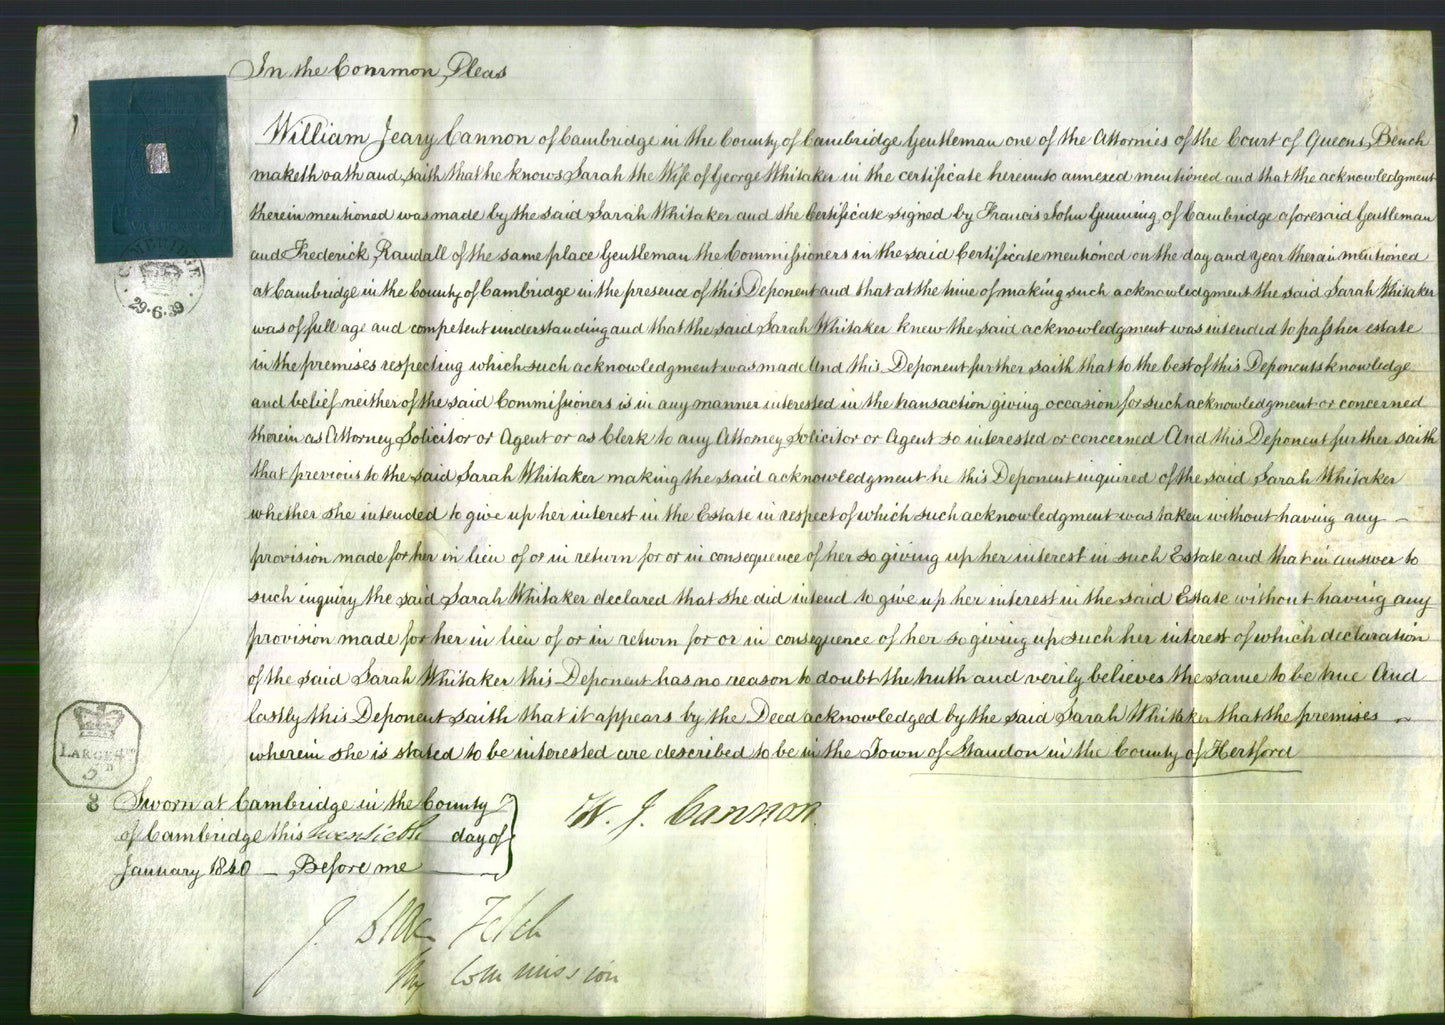 In the Common Pleas
William Jeary Cannon of Cambridge in the County of Cambridge Gentleman one of the Attornies of the Court of Queens Bench
maketh oath and saith that he knows Sarah the Wife of George Whitaker in the certificate hereunto annexed mentioned and that the acknowledgment
therein mentioned was made by the said Sarah Whitaker and the Certificate signed by Francis John Gunning of Cambridge aforesaid Gentleman
and Frederick Randall of the same place Gentleman the Commissioners in the said Certificate mentioned on the day and year therein mentioned
at Cambridge in the County of Cambridge in the presence of this Deponent and that at the time of making such acknowledgment the said Sarah Whitaker
was of full age and competent understanding and that the said Sarah Whitaker knew the said acknowledgment was intended to pass her estate
in the premises respecting which such acknowledgment was made And this Deponent further saith that to the best of this Deponents knowledge
and belief neither of the said Commissioners is in any manner interested in the transaction giving occasion for such acknowledgment or concerned
therein as Attorney Solicitor or Agent or as Clerk to any Attorney Solicitor or Agent so interested or concerned And this Deponent further saith
that previous to the said Sarah Whitaker making the said acknowledgment he this Deponent inquired of the said Sarah Whitaker
whether she intended to give up her interest in the Estate in respect of which such acknowledgment was taken without having any
provision made for her in lieu of or in return for or in consequence of her so giving up her interest in such Estate and that in answer to
such inquiry the said Sarah Whitaker declared that she did intend to give up her interest in the said Estate without having any
provision made for her in lieu of or in return for or in consequence of her so giving up such her interest of which declaration
of the said Sarah Whitaker this Deponent has no reason to doubt the truth and verily believes the same to be true And
lastly this Deponent saith that it appears by the Deed acknowledged by the said Sarah Whitaker that the premises
wherein she is stated to be interested are described to be in the Town of Standon in the County of Hertford
CAMBRIDGE
29.6.39
LARGE
D
8
Sworn at Cambridge in the County
of Cambridge this twentieth day of
January 1840 Before me
W. J. Cannon
J.
Commission